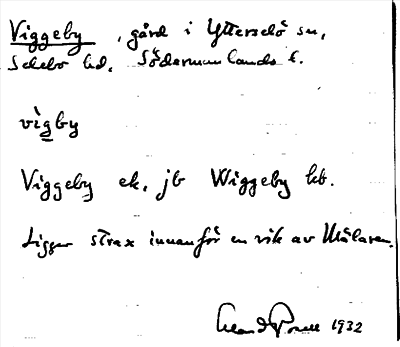 Viggeby, gård i Ytterselö sn,
Selebo hd, Södermanlands l.
vigby
Viggeby ek, jb Wiggeby kb.
Ligger strax innanför en vik av Mälaren.
1932